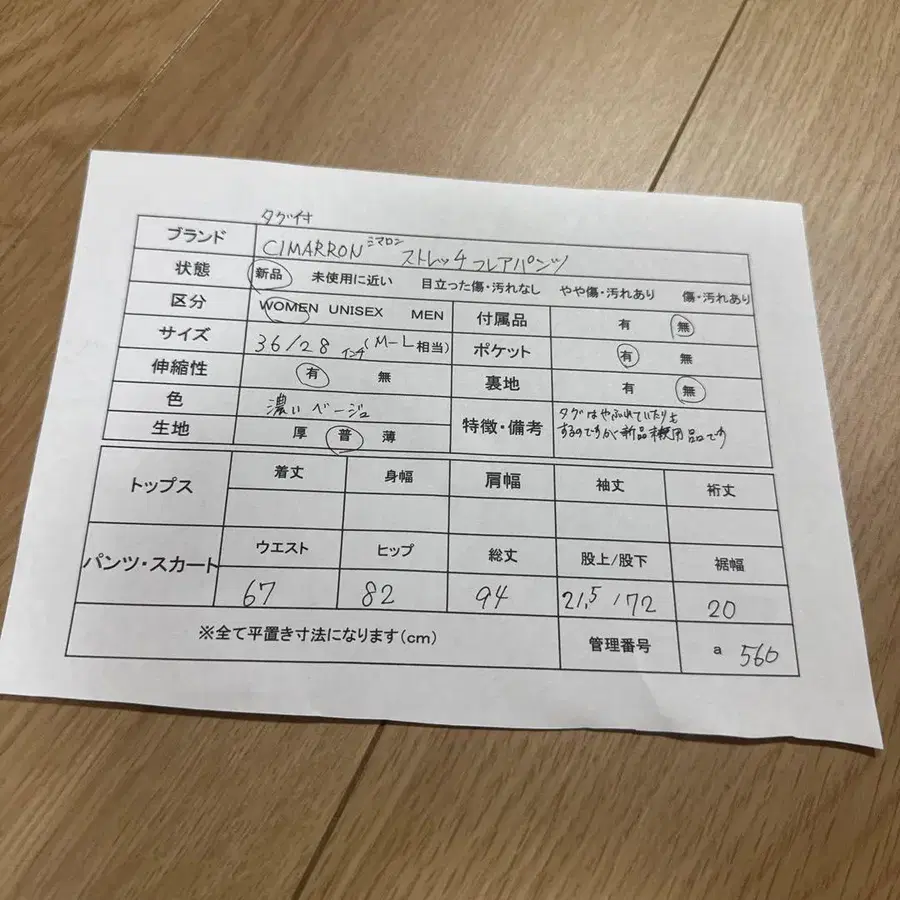 タグ付
ブランド CIMARRON シマロン ストレッチフレアパンツ
状態 新品 未使用に近い 目立った傷・汚れなし やや傷・汚れあり 傷・汚れあり
区分 WOMEN UNISEX MEN 付属品 有 無
サイズ 36/28 インチ (M-L相当) ポケット 有 無
伸縮性 有 無 裏地 有 無
色 濃いベージュ 特徴・備考 タグはやぶれていたりも
するのですが新品未使用品です
生地 厚 普 薄
トップス 着丈 身幅 肩幅 袖丈 裄丈
パンツ・スカート ウエスト ヒップ 総丈 股上/股下 裾幅
67 82 94 21.5/72 20
※全て平置き寸法になります(cm) 管理番号 a 560